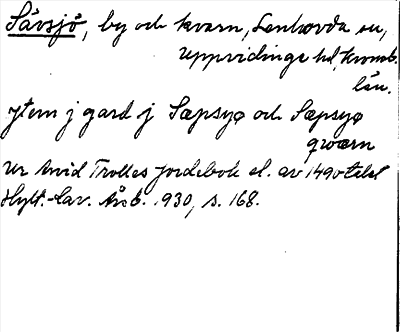 Sävsjö, by och kvarn, Lenhovda sn,
Uppvidinge hd, Kronob.
län.
Jtem j gard j Sæpsyø och Sæpsyø
qwærn
Ur Arvid Trolles Jordebok el. av 1490talet
Hylt.-Cav. Årsb. 1930, s. 168.